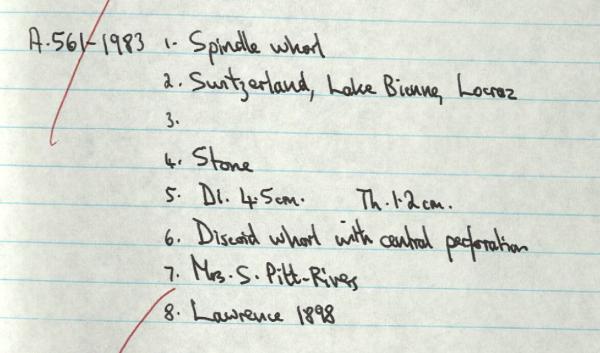 A.561-1983 1. Spindle whorl
2. Switzerland, Lake Bienne, Locraz
3.
4. Stone
5. Di. 4.5cm. Th. 1.2cm.
6. Discoid whorl with central perforation
7. Mrs. S. Pitt-Rivers
8. Lawrence 1898